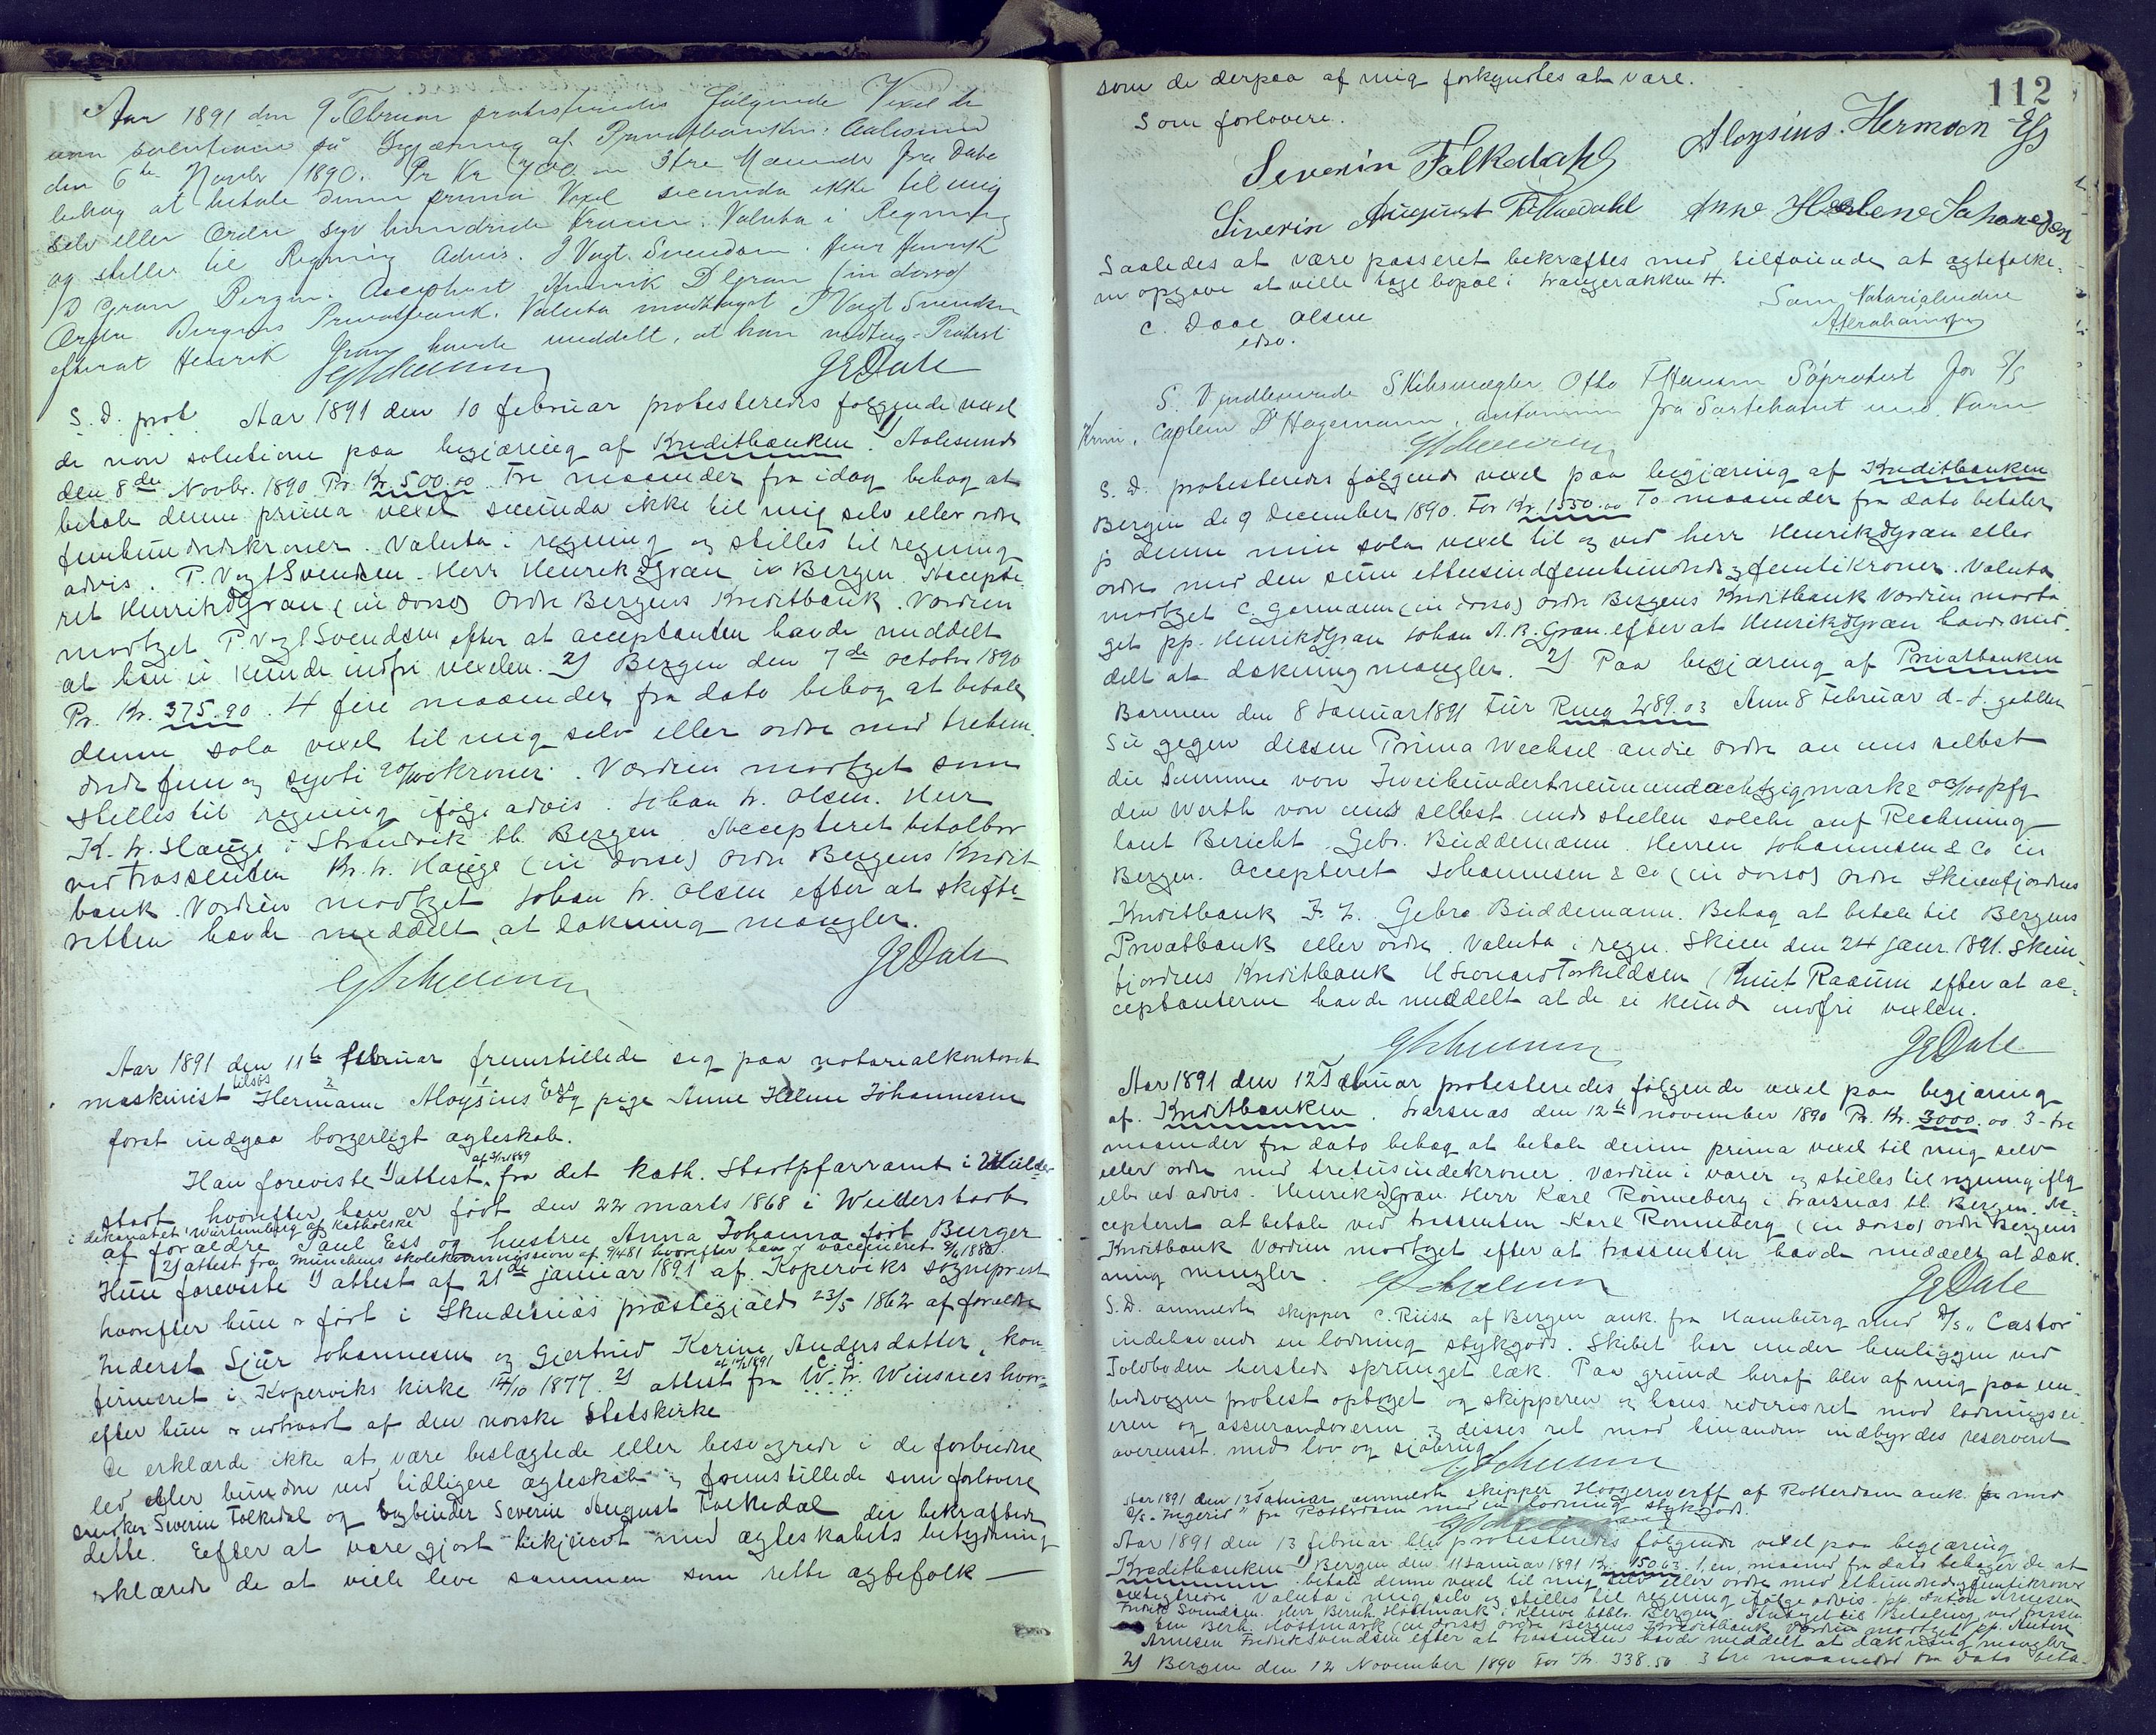 Aar 1891 den 9 Februar protesteredes følgende Vexel de
non solutione på Begjæring af Privatbanken: Aalesund
den 6te Novbr 1890. Pr Kr 700 3 tre Maaneder fra Dato
behag at betale denne prima Vexel secunda ikke til mig
selv eller Ordre syv hundrede Kroner. Valuta i Regning
og stilles til Regning Advis. P Vogt Svendsen. Herr Henrik
D Gran Bergen. Accepteret Henrik D Gran (in dorso)
Ordre Bergens Privatbank. Valuta modtaget P Vogt Svendsen
efterat Henrik Gran havde meddelt, at han modtog Protest
GEDale
S. D. prot. Aar 1891 den 10 februar protesteredes følgende vexel
de non solutione paa begjæring af Kreditbanken 1) Aalesund
den 8de Novbr. 1890 Pr. Kr. 500.00. Tre maaneder fra idag behag at
betale denne prima vexel secunda ikke til mig selv eller ordre
femhundredekroner. Valuta i regning og stilles til regning
advis. P. Vogt Svendsen. Herr Henrik D Gran i Bergen. Accepte-
ret Henrik D Gran (in dorso) Ordre Bergens Kreditbank. Værdien
modtget P. Vogt Svendsen efter at acceptanten havde meddelt
at han ei kunde indfri vexelen. 2) Bergen den 7de october 1890
Pr. Kr. 375.90. 4 fire maaneder fra dato behag at betale
denne sola vexel til mig selv eller ordre med trehun-
drede fem og sytti 90/100 kroner. Værdien modtget som
stilles til regning ifølge advis. Johan W. Olsen. Herr
K. W. Hauge i Strandvik bl. Bergen. Accepteret betalbar
ved trassenten K. W. Hauge (in dorso) Ordre Bergens Kredit
bank. Værdien modtget Johan W. Olsen efter at skifte-
retten havde meddelt at dækning mangler.
GEDale
Aar 1891 den 11te februar fremstillede sig paa notarialkontoret
maskinist tilsøs Hermann Aloysius Ess og pige Anne Helene Johannesen
forat indgaa borgerligt ægteskab.
Han foreviste 1) attest af 3/12 1889 fra det kath. Stadtpfarramt i Weilder-
stadt hvorefter han er født den 22 marts 1868 i Weilderstadt
i dekanatet Würtemberg af katholske
af forældre Paul Ess og hustru Anna Johanna født Burger
2) attest fra Münchens skolekommission af 9/4 81 hvorefter han er vaccineret 9/6 1880.
Hun foreviste 1) attest af 21de januar 1891 af Koperviks sogneprest
hvorefter hun er født i Skudesnæs præstegjæld 23/5 1862 af forældre
Inderst Sjur Johannesen og Gjertrud Karine Andersdatter, kon-
firmeret i Koperviks kirke 14/10 1877. 2) attest af 10/2 1891 fra C. J. Wiesnes hvor-
efter hun er udtraadt af den norske statskirke
De erklærde ikke at være beslægtede eller besvogrede i de forbudne
led eller bundne ved tidligere ægteskab og fremstillede som forlovere
snedker Severin Folkedal og bogbinder Severin August Folkedal der bekræfted
dette. Eefter at være gjort bekjendt med ægteskabets betydning
erklærede de at ville leve sammen som rette ægtefolk —
112
som de derpaa af mig forkyndtes at være.
Som forlovere.
Aloysius. Herman Ess
Severin Folkedahl
Siverin August Folkedahl Anne Helene Johannesen
Saaledes at være passeret bekræftes med tilføiende at ægtefolke-
ne opgave at ville tage bopæl i Vaagerækken 4.
C. Daae Olsen
edsv.
Som Notarialvidne
Abrahamsen
S. D indleverede Skibsmægler Otto T Hansen Søprotest for S/S
Captein D Hagemann, ankommen fra med Korn
S. D. protesteredes følgende vexel paa begjæring af Kreditbanken
Bergen de 9 December 1890. For Kr. 1550.00 To maaneder fra dato betaler
jeg denne min sola vexel til og ved herr Henrik D Gran eller
ordre med den sum ettusindfemhundrede og femtikroner. Valuta
modtget C. Germann (in dorso) ordre Bergens Kreditbank Værdien modta
get pp. Henrik D Gran Johan A. B. Gran. efter at Henrik D Gran havde med-
delt at dækning mangler. 2) Paa begjæring af Privatbanken
Barmen den 8 Januar 1891 Für Rmg 289.03 Am 8 Februar d. J. zahlen
Sie gegen diesen Prima Wechsel an die Ordre an uns selbst
die Summe von Zweihundertneunundachtzigmark 03/100 pfg
den Werth von uns selbst und stellen solche auf Rechnung
laut Bericht. Gebr. Büddemann. Herren Johannesen & Co in
Bergen. Accepteret Johannesen & Co (in dorso) Ordre Skiensfjordens
Kreditbank F. L. Gebr. Büddemann. Behag at betale til Bergens
Privatbank eller ordre. Valuta i regn. Skien den 24 Janr. 1891. Skien-
fjordens Kreditbank Torkildsen (Knut Raaum efter at ac-
ceptanterne havde meddelt at de ei kunde indfri vexelen.
GEDale
Aar 1891 den 12 Februar protesteredes følgende vexel paa begjæring
af Kreditbanken. Varsnæs den 12te november 1890 Pr. Kr. 3000.00 3-tre
maaneder fra dato behag at betale denne prima vexel til mig selv
eller ordre med tretusindekroner. Værdien i varer og stilles til regning iflg
eller ud advis. Henrik D Gran. Herr Karl Ronneberg i Varsnæs bl. Bergen. Ac-
cepteret at betale ved trassenten Karl Ronneberg (in dorso) ordre Bergens
Kreditbank Værdien modtget efter at trassenten havde meddelt at dæk-
ning mangler.
GEDale
S. D. anmeldte skipper C. Riise af Bergen ank. fra Hamburg med D/S „Castor"
indehavende en ladning stykgods. Skibet har under henliggen ved
Toldboden hersteds sprunget læk. Paa grund heraf blev af mig paa em-
bedsvegne protest optaget og skipperen og hans rederis ret mod ladningsei-
eren og assurandørerne og disses ret mod hinanden indbyrdes reserveret
overenst. med lov og sjøbrug
Aar 1891 den 13 Februar anmeldte skipper Hoogerwerff af Rotterdam ank. med
S/S „Ingerid" fra Rotterdam med en ladning stykgods.
Aar 1891 den 13 februar blev protesteredes følgende vexel paa begjæring
Kreditbanken 1) Bergen den 11 Januar 1891 Kr. 150.63 1, en, maaned fra dato behager de at
betale denne vexel til mig selv eller ordre med ethundredeogfemtikroner
sextigtreøre Valuta i mig selv og stilles til regning ifølge advis. pp. Anton Arnesen
Fredrik Svendsen. Herr Bernh. Hostmark i Kleive bl. Bergen. Antaget til Betaling ved trassen
ten Berh. Hostmark (in dorso) ordre Bergens Kreditbank Værdien modtget pp. Anton
Arnesen Fredrik Svendsen efter at trassenten havde meddelt at dækning mangler
2) Bergen den 12 November 1890 For Kr. 338.50 3 tre maaneder fra dato beta-